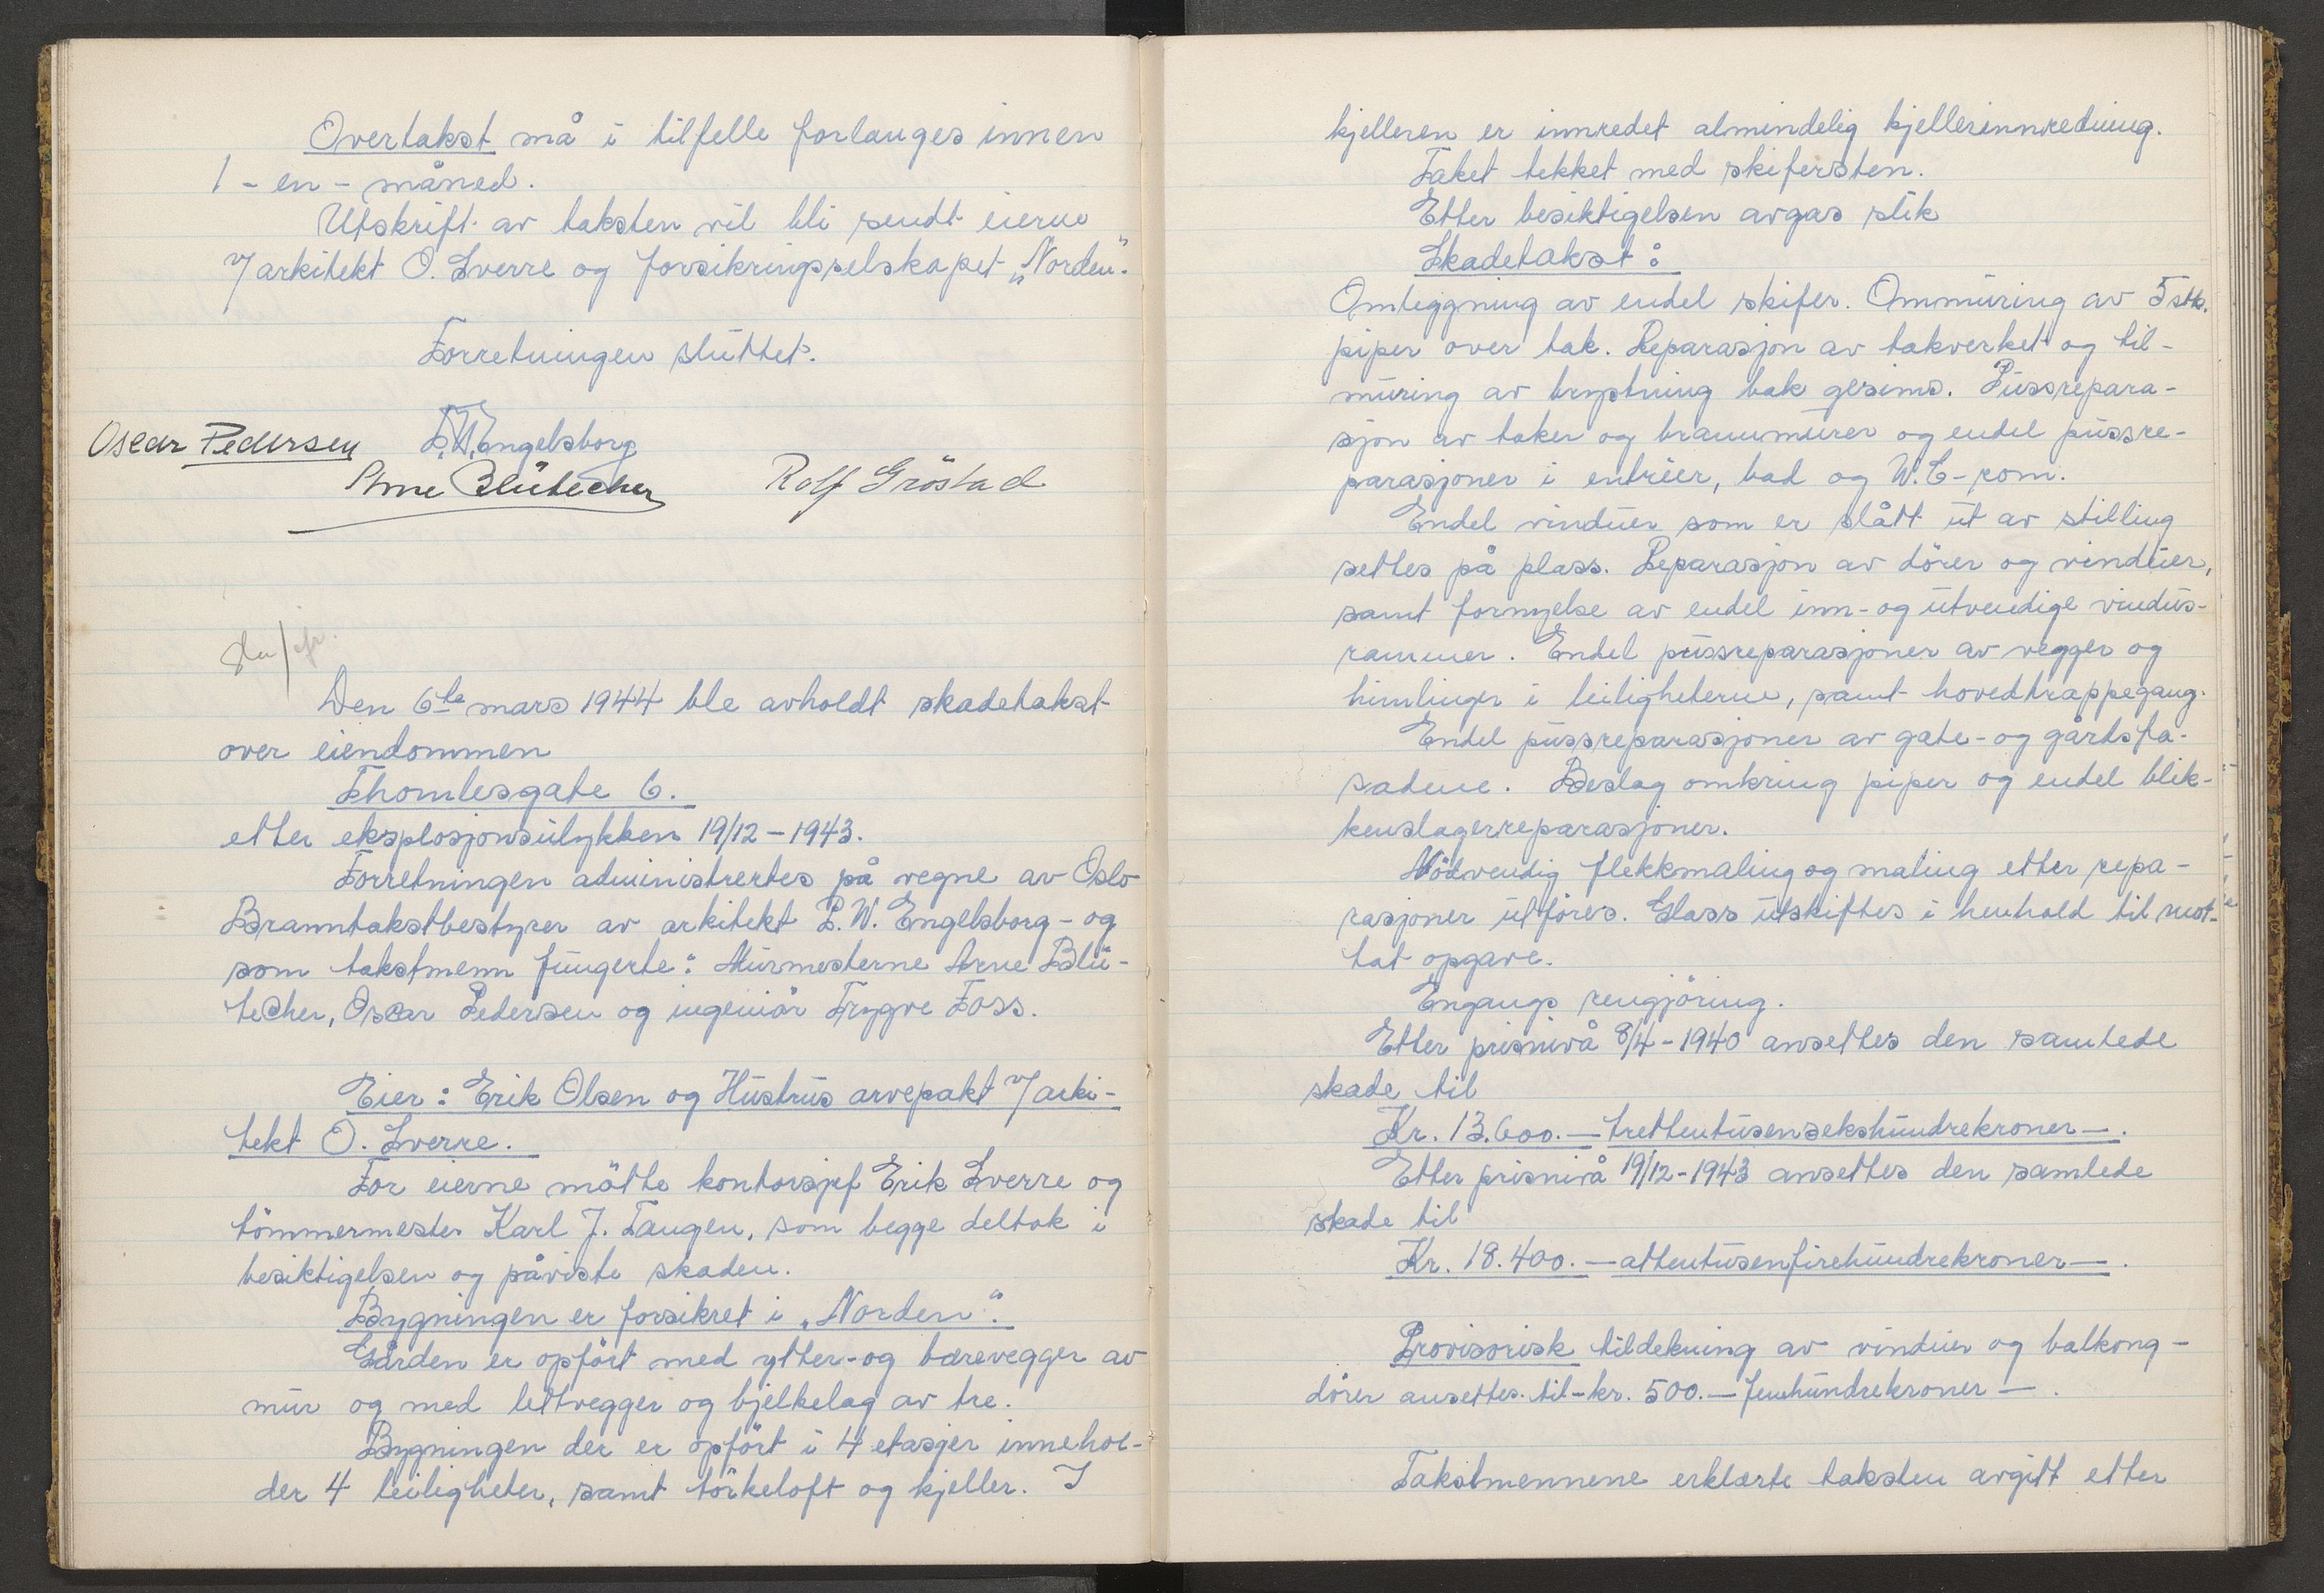 Overtakst må i tilfelle forlanges innen
1 - en - måned.
Utskrift av taksten vil bli sendt eierne
v/arkitekt O. Sverre og forsikringsselskapet „Norden".
Forretningen sluttet.
Oscar Pedersen P.W. Engelsborg
Arne Blütecher Rolf Gröstad
Den 6te mars 1944 ble avholdt skadetakst
over eiendommen
Thomlesgate 6.
etter eksplosjonsulykken 19/12 - 1943.
Forretningen administrertes på vegne av Oslo
Branntakstbestyrer av arkitekt P. W. Engelsborg - og
som takstmenn fungerte: Murmesterne Arne Blü-
techer, Oscar Pedersen og ingeniör Trygve Foss.
Eier: Erik Olsen og Hustrus arvepakt v/arki-
tekt O. Sverre.
For eierne mötte kontorsjef Erik Sverre og
tömmermester Karl J. Taugen, som begge deltok i
besiktigelsen og påviste skaden.
Bygningen er forsikret i „Norden".
Gården er opfört med ytter- og bærevegger av
mur og med lettvegger og bjelkelag av tre.
Bygningen der er opfört i 4 etasjer innehol-
der 4 leiligheter, samt törkeloft og kjeller. I
kjelleren er innredet almindelig kjellerinnredning.
Taket tekket med skifersten.
Etter besiktigelsen avgas slik
Skadetakst:
Omleggning av endel skifer. Ommuring av 5 stk.
piper over tak. Reparasjon av takverket og til-
muring av bryshning bak gesims. Pussrepara-
sjon av taker og brannmurer og endel pussre-
parasjoner i entréer, bad og W.C-rom.
Endel vinduer som er slått ut av stilling
settes på plass. Reparasjon av dörer og vinduer,
samt fornyelse av endel inn- og utvendige vindus-
rammer. Endel pussreparasjoner av vegger og
himlinger i leilighetene, samt hovedtrappegang.
Endel pussreparasjoner av gate- og gårdsfa-
sadene. Beslag omkring piper og endel blik-
kenslagerreparasjoner.
Nödvendig flekkmaling og maling etter repa-
rasjoner utföres. Glass utskiftes i henhold til mot-
tat opgave.
Engangs rengjöring.
Etter prisnivå 8/4 - 1940 ansettes den samlede
skade til
Kr. 13.600. — trettentusensekshundrekroner —.
Etter prisnivå 19/12 - 1943 ansettes den samlede
skade til
Kr. 18.400. — attentusenfirehundrekroner —.
Provisorisk tildekning av vinduer og balkong-
dörer ansettes til - kr. 500. — femhundrekroner —.
Takstmennene erklærte taksten avgitt etter